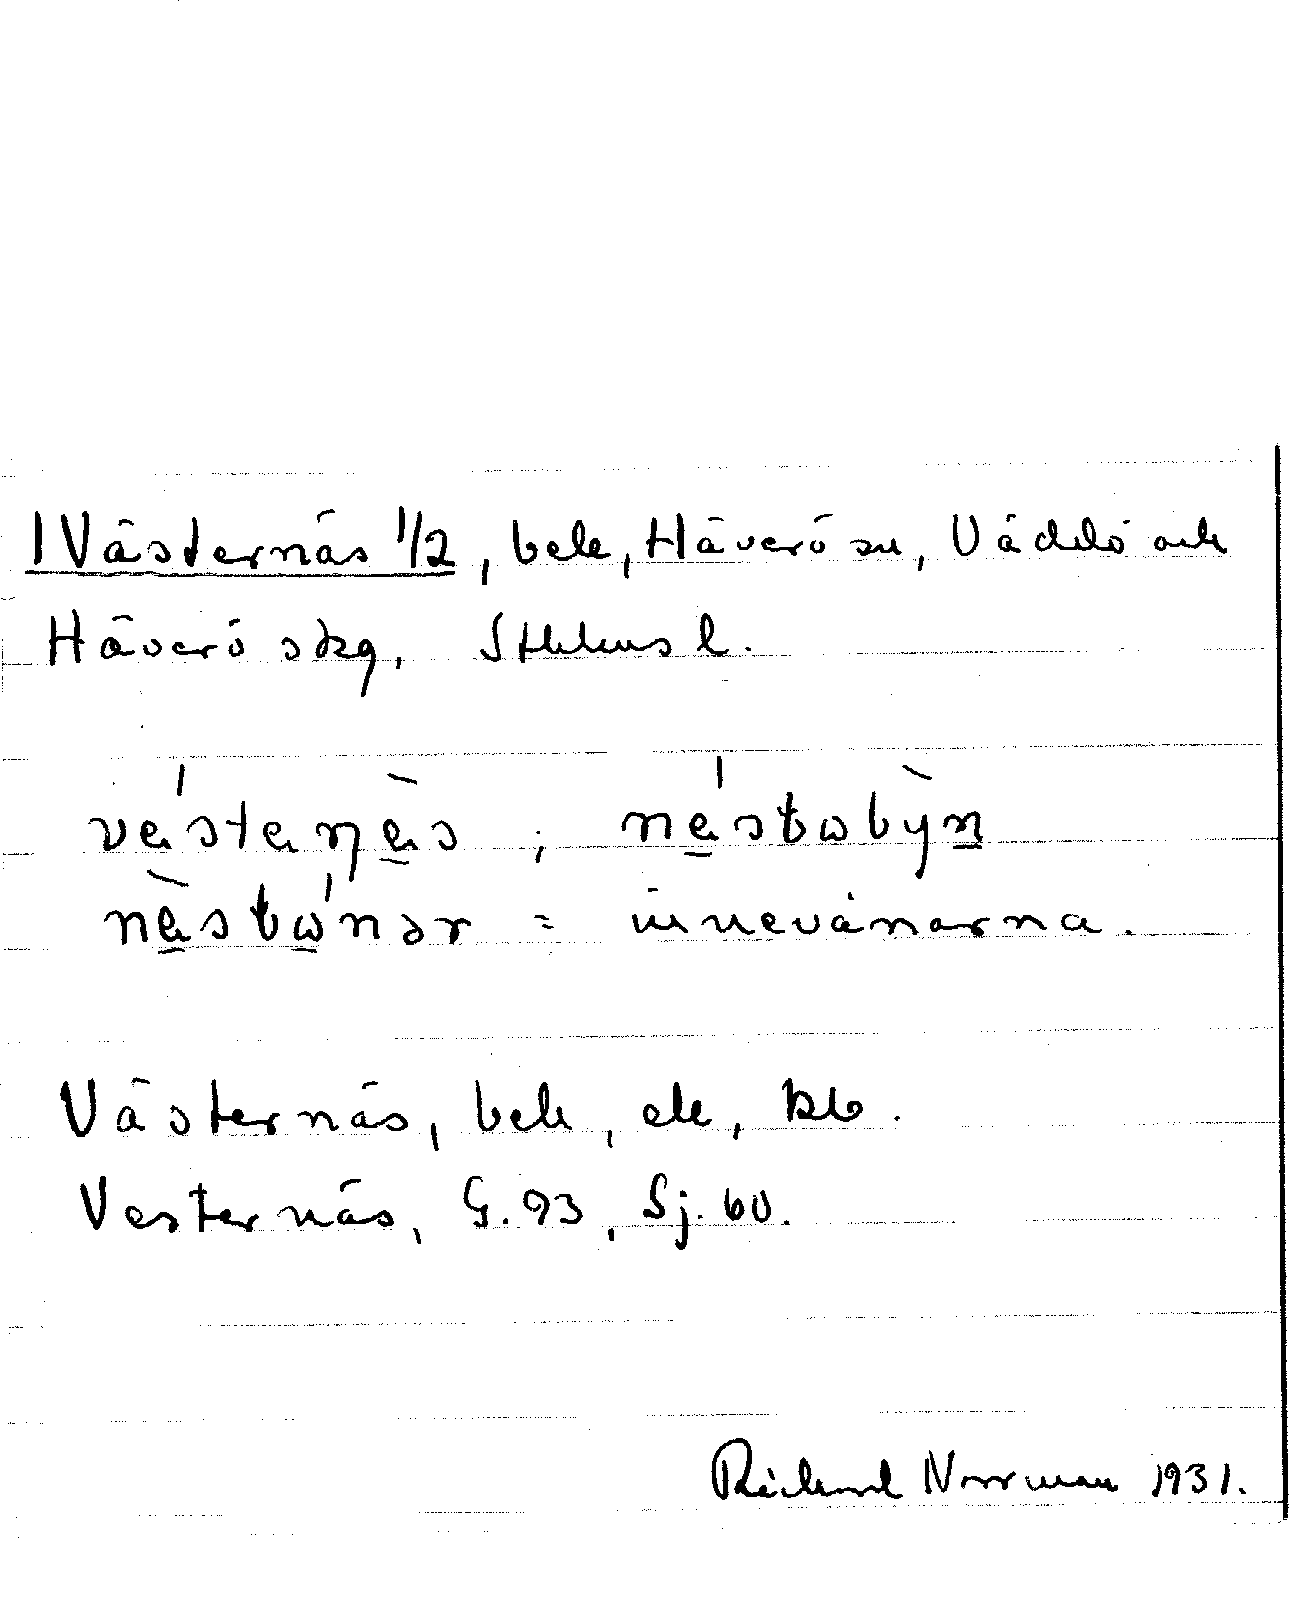 Västernäs 1/2, bek, Häverö sn, Väddö och
Häverö skg, Sthlms l.
västanäs ; nästobyn
nästonər = innevånarna.
Västernäs, bek, ek, kb.
Vesternäs, G. 93, Sj. 60.
Richard Norrman 1931.